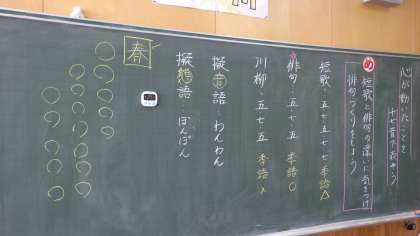 心が動いたことを
十七音で表そう
め 短歌と俳句の違いに気をつけ
俳句づくりをしよう
短歌・五七五七七 季語△
俳句・五七五 季語○
川柳・五七五 季語×
擬音語 わんわん
擬態語 ぽんぽん
春
○○○○○
○○○○○○○
○○○○○